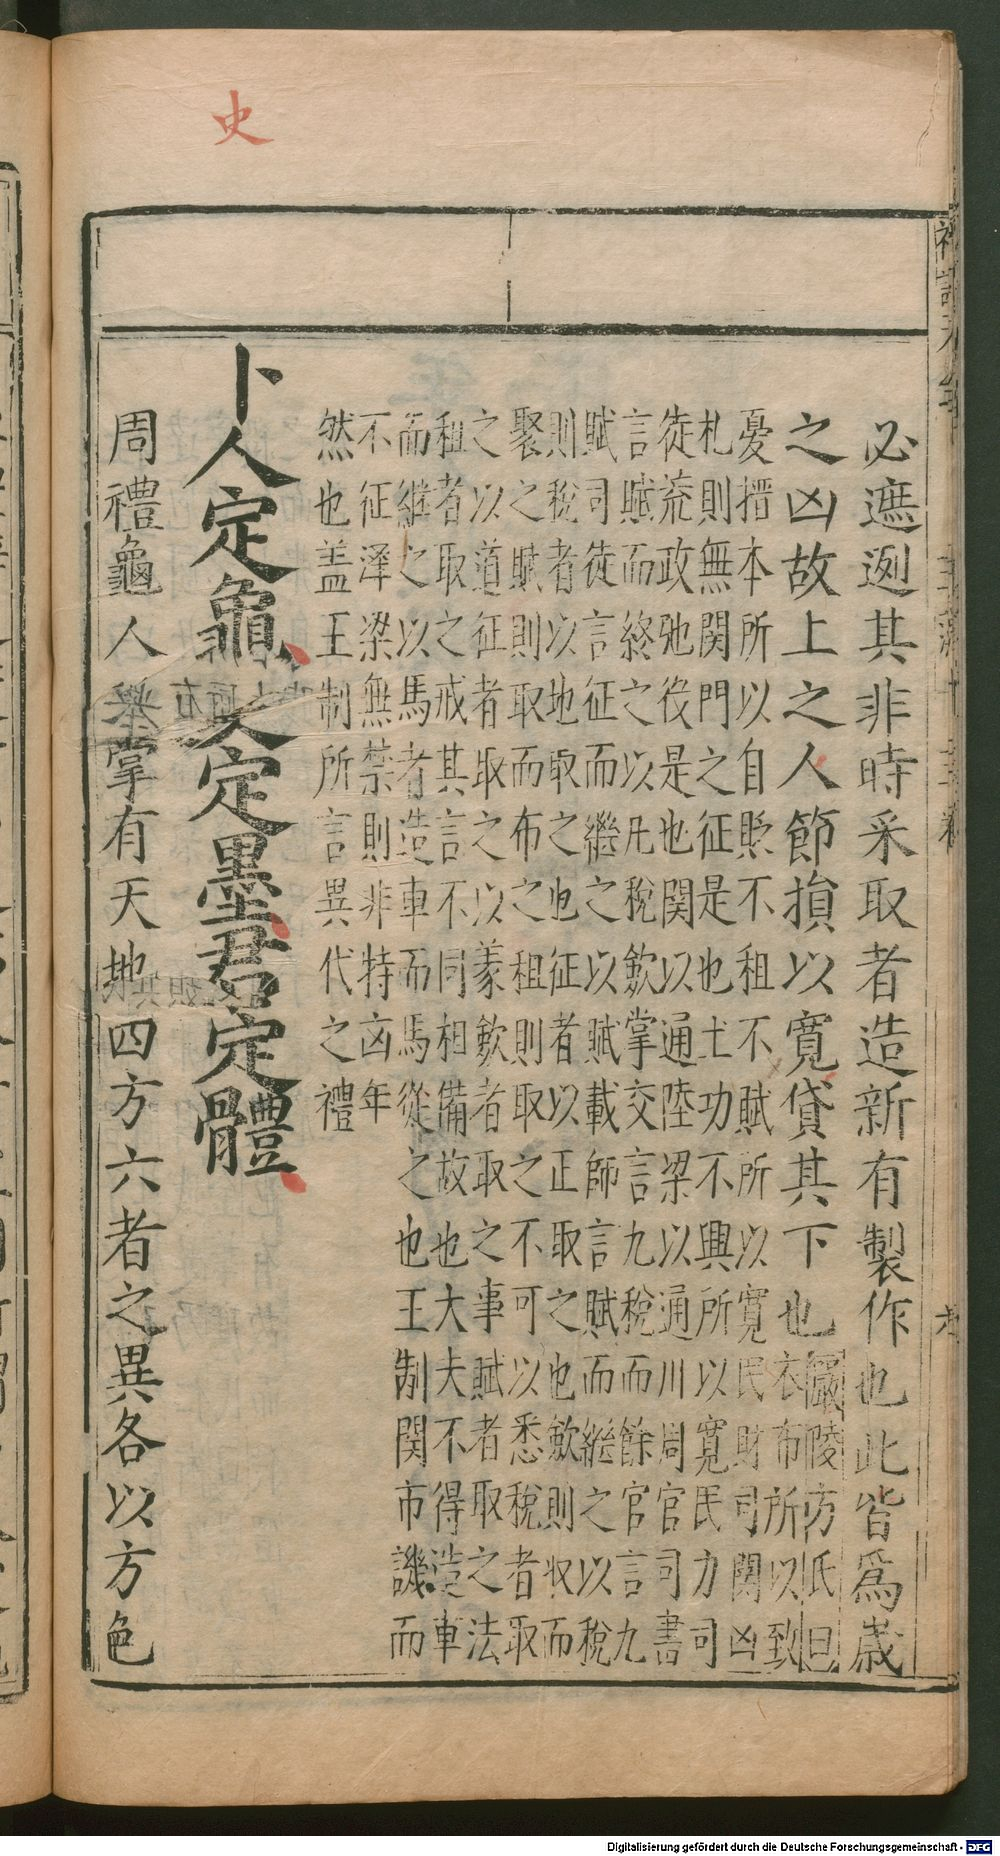 史
必遮迾其非時采取者造新有製作也此皆爲歲
之凶故上之人節損以寬貸其下也
嚴陵方氏曰
衣布所以致
憂搢本所以自貶不租不賦所以寬民財司關凶
札則無関門之征是也土功不興所以寬民力司
徒荒政弛役是也関以通陸梁以通川周官司書
言賦而終之以凡稅斂掌交言九稅而餘官言九
賦司徒言征而繼之以賦載師言賦而繼之以稅
則稅者以地取之也征者以正取之也斂則收而
聚之賦則取而布之租則取之不可以悉稅者取
之以道征者取之以義斂者取之事賦者取之法
租者取之戒其言不同相備故也大夫不得造車
而繼之以馬者造車而馬從之也王制関市譏而
不征澤梁無禁則非特凶年
然也盖王制所言異代之禮
卜人定龜史定墨君定體
周禮龜人掌有天地四方六者之異各以方色
Digitalisierung gefördert durch die Deutsche Forschungsgemeinschaft - DFG